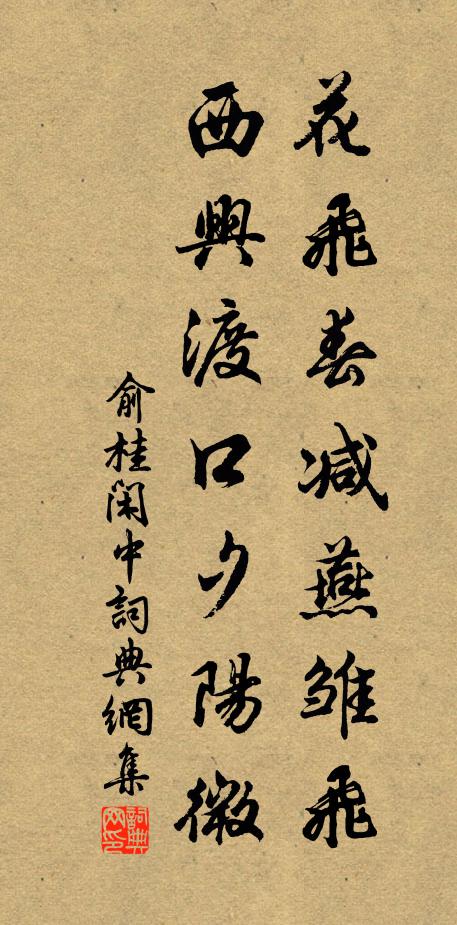 花飛春减燕雏飛
西興渡口夕陽微
俞桂閑中詞典網集
詞典网印